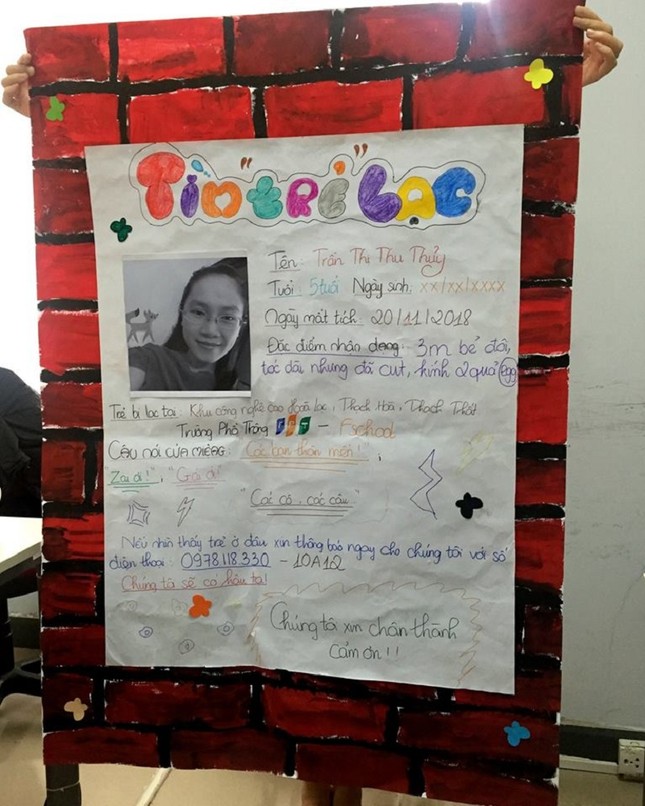 Tìm "trẻ" Lạc
Tên: Trần Thị Thu Thủy
Tuổi: 5 tuổi Ngày sinh: xx/xx/xxxx
Ngày mất tích: 20/11/2018
Đặc điểm nhân dạng: 3m bẻ đôi,
tóc dài nhưng đã cut, kính 2 quả egg
Trẻ bị lạc tại: Khu công nghệ cao Hòa Lạc, Thạch Hòa, Thạch Thất
Trường Phổ Thông FPT - Fschool
Câu nói cửa miệng: "Các bạn thân mến!",
"Zai ơi!", "Gái ơi"
"Các cô, các cậu"
Nếu nhìn thấy trẻ ở đâu xin thông báo ngay cho chúng tôi với số
điện thoại: 0978.118.330 - 10A12
Chúng tôi sẽ có hậu tạ!
Chúng tôi xin chân thành
cảm ơn!!